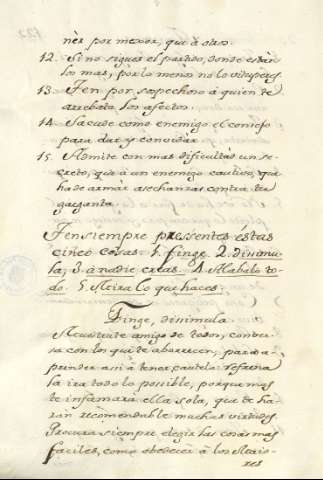 ner por menor, que à otro.
12. Si no sigues el partido, donde están
los mas, por lo menos no lo vituperes.
13. Ten por sospechoso à quien te
arrebata los afectos.
14. Sacude como enemigo el consejo
para dar y convidar.
15. Admite con mas dificultad un se-
creto, que à un enemigo cautivo, que
ha de armar asechanzas contra tu
garganta.
Ten siempre pressentes éstas
cinco cosas. 1. finge. 2. disimu-
la, 3. à nadie creas. 4. Alabalo to-
do. 5. Mira lo que haces.
Finge, disimula
Muestrate amigo de todos, conver-
sa con los que te aborrecen, para a-
prender asi à tener cautela: refrena
la ira todo lo possible, porque mas
te infamará ella sola, que te ha-
ran recomendable muchas virtudes.
Procura siempre elegir las cosas mas
faciles, como obedecer à los Maio-
res